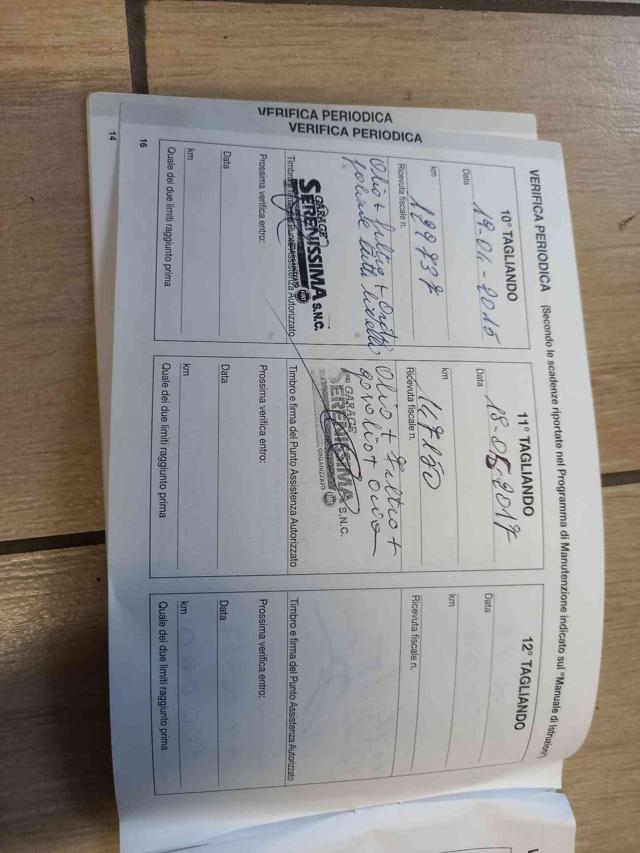 VERIFICA PERIODICA
VERIFICA PERIODICA
VERIFICA PERIODICA (Secondo le scadenze riportate nel Programma di Manutenzione indicato sul "Manuale di Istruzioni")
10° TAGLIANDO
Data 19-04-2015
km 129737
Ricevuta fiscale n.
Olio + +
tutti
GARAGE
SERENISSIMA S.N.C.
Timbro e firma del Punto Assistenza Autorizzato
Prossima verifica entro:
Data
km
Quale dei due limiti raggiunto prima
11° TAGLIANDO
Data 18-05-2017
km
Ricevuta fiscale n.
Olio + Filtro +
gasolio +
GARAGE
SERENISSIMA S.N.C.
ORGANIZZATO
Timbro e firma del Punto Assistenza Autorizzato
Prossima verifica entro:
Data
km
Quale dei due limiti raggiunto prima
12° TAGLIANDO
Data
km
Ricevuta fiscale n.
Timbro e firma del Punto Assistenza Autorizzato
Prossima verifica entro:
Data
km
Quale dei due limiti raggiunto prima
16
14